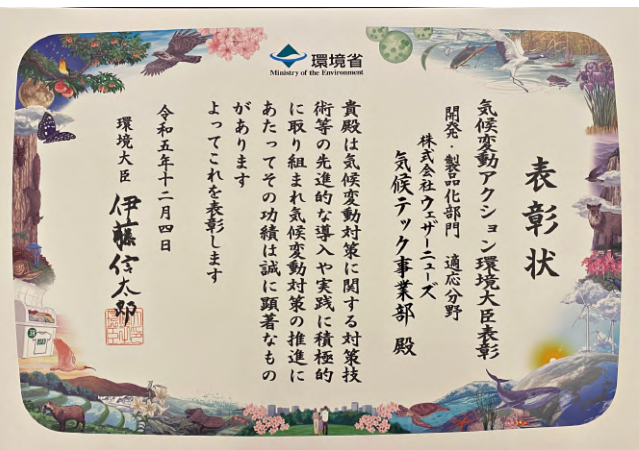 環境省
Ministry of the Environment
表彰状
気候変動アクション環境大臣表彰
開発・製品化部門 適応分野
株式会社ウェザーニューズ
気候テック事業部 殿
貴殿は気候変動対策に関する対策技
術等の先進的な導入や実践に積極的
に取り組まれ気候変動対策の推進に
あたってその功績は誠に顕著なもの
があります
よってこれを表彰します
令和五年十二月四日
環境大臣 伊藤信太郎